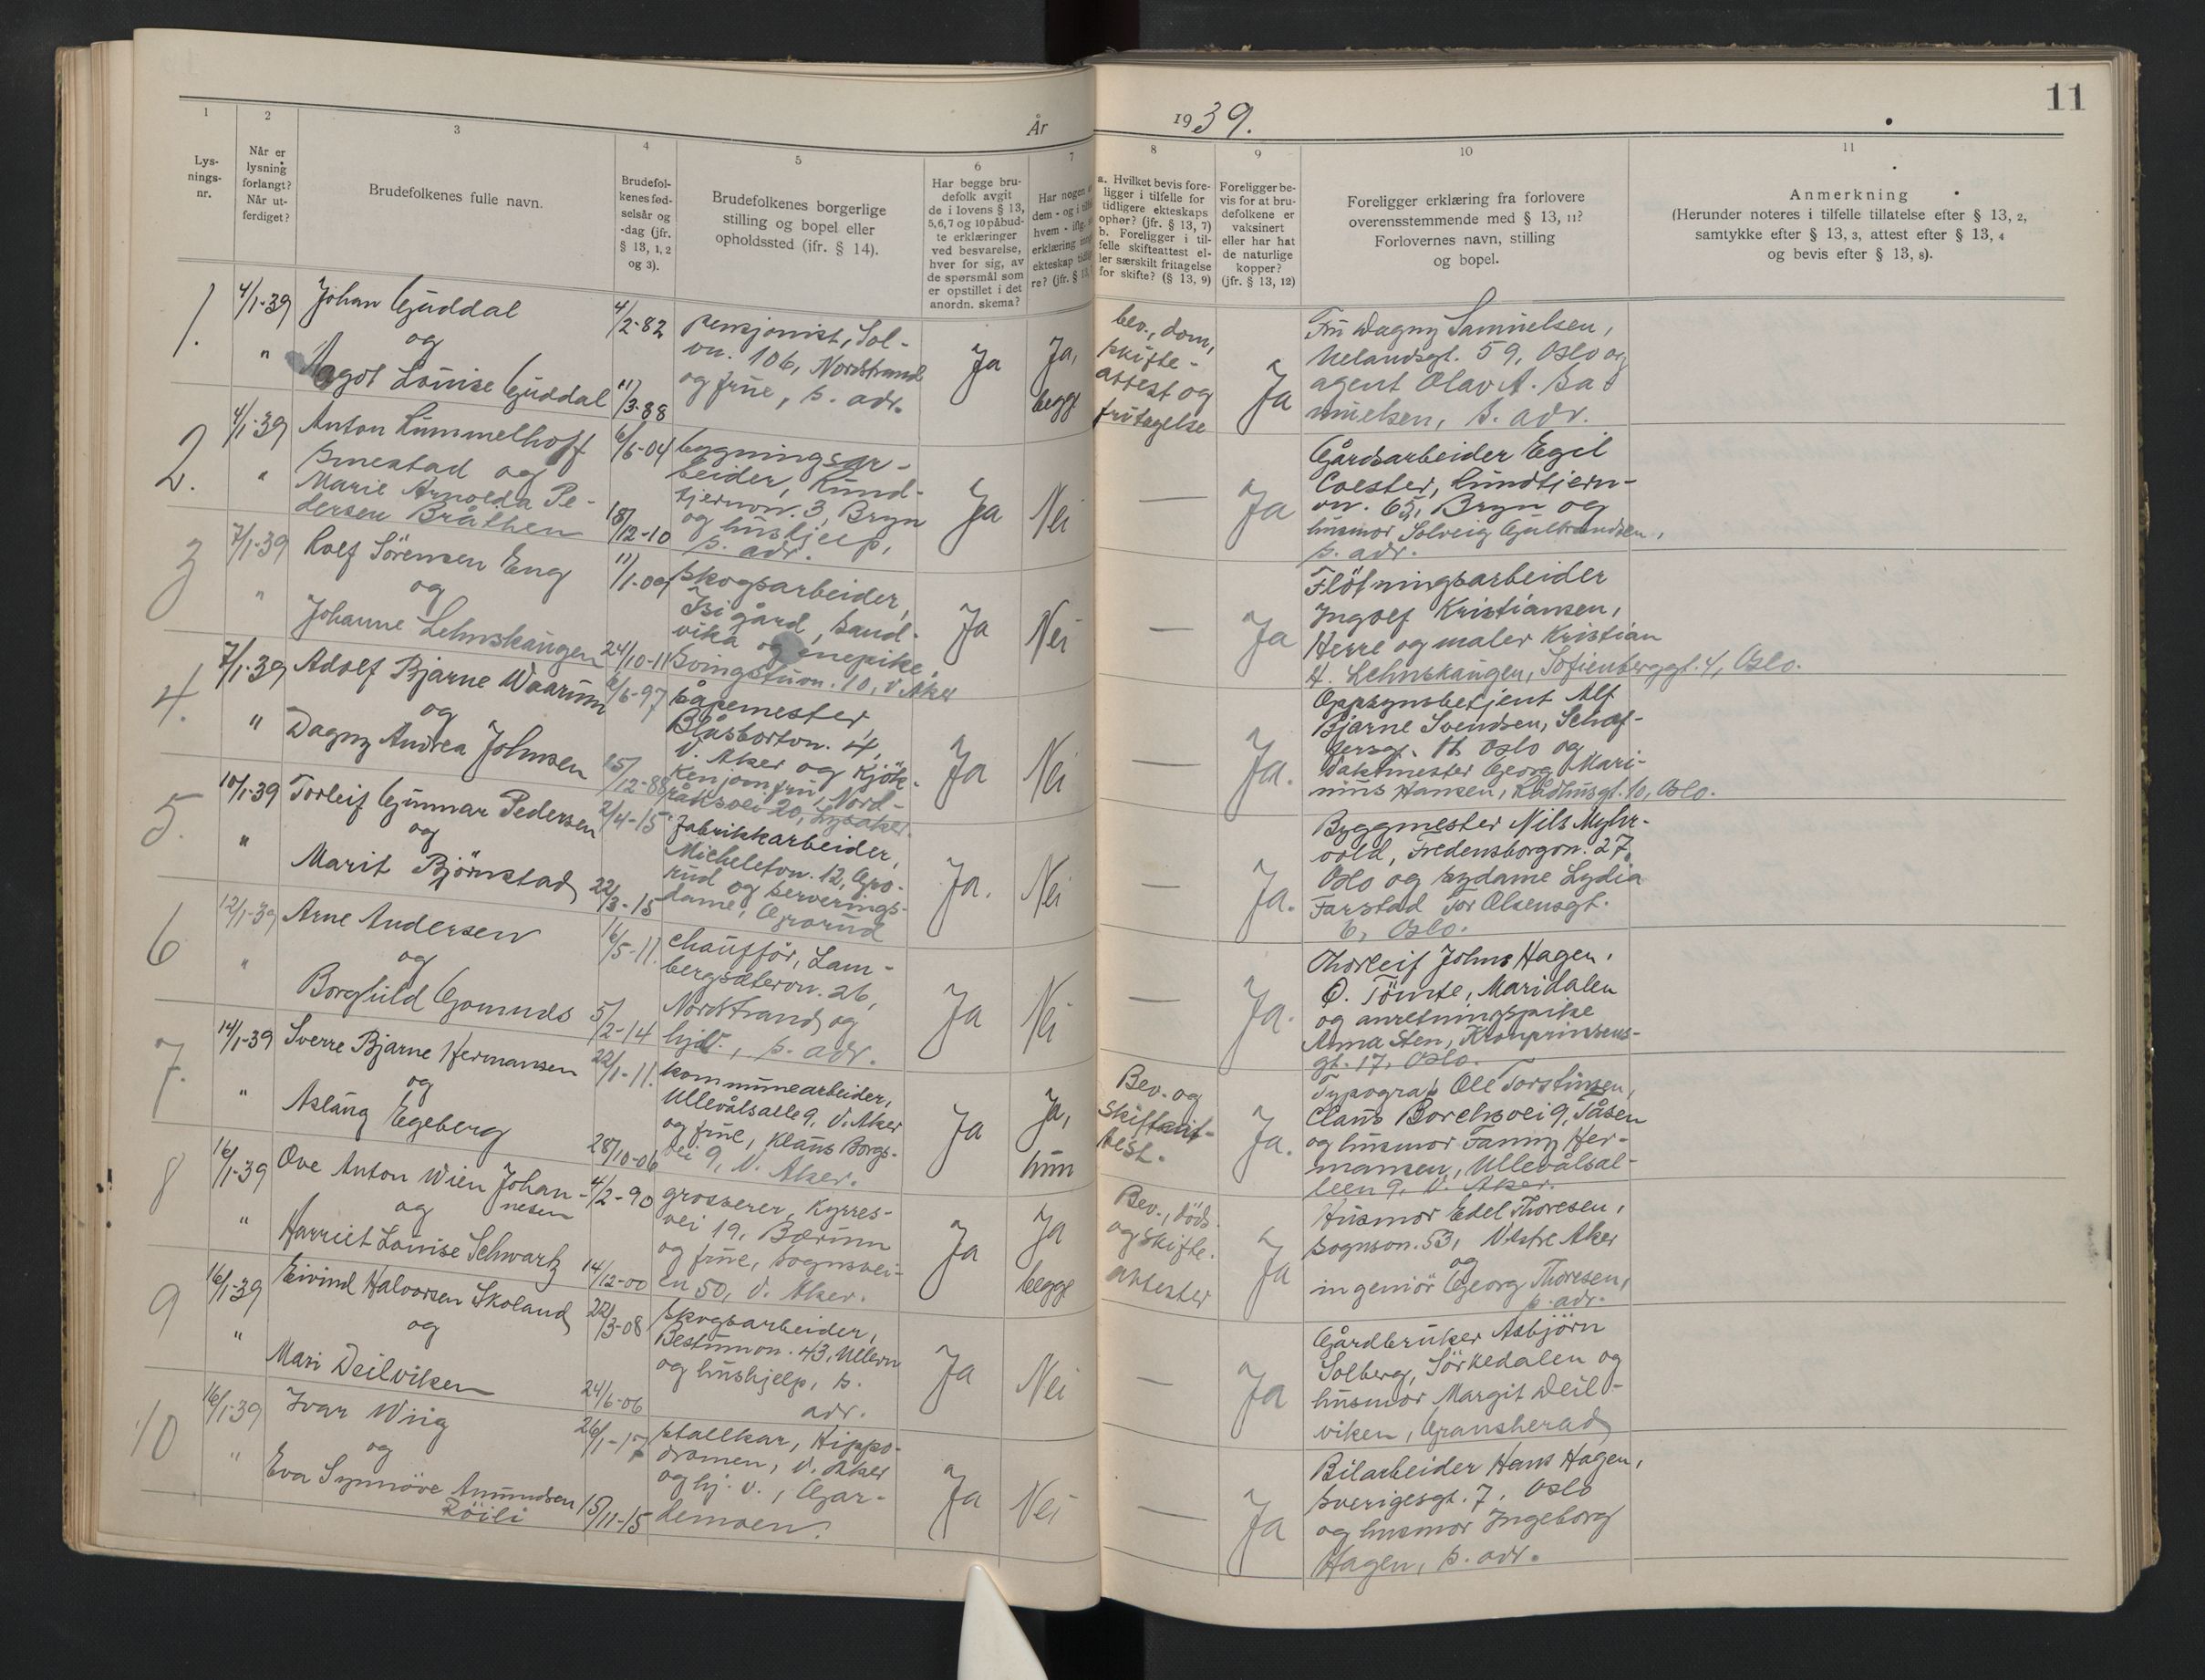 År
1939.
11
1
2
3
4
5
6
7
8
9
10
11
Lys-
nings-
nr.
Når er
lysning
forlangt?
Når ut-
ferdiget?
Brudefolkenes fulle navn.
Brudefol-
kenes fød-
selsår og
-dag (jfr.
§ 13, 1, 2
og 3).
Brudefolkenes borgerlige
stilling og bopel eller
opholdssted (ifr. § 14).
Har begge bru-
defolk avgit
de i lovens § 13,
5,6,7 og 10 påbud-
te erklæringer
ved besvarelse,
hver for sig, av
de spørsmål som
er opstillet i det
anordn. skema?
Har nogen
dem - og i
hvem - ifg.
erklæring
ekteskap
re? (jfr. § 13,
a. Hvilket bevis fore-
ligger i tilfelle for
tidligere ekteskaps
ophør? (jfr. § 13, 7)
b. Foreligger i til-
felle skifteattest el-
ler særskilt fritagelse
for skifte? (§ 13, 9)
Foreligger be-
vis for at bru-
defolkene er
vaksinert
eller har hat
de naturlige
kopper?
(jfr. § 13, 12)
Foreligger erklæring fra forlovere
overensstemmende med § 13, 11?
Forlovernes navn, stilling
og bopel.
Anmerkning
(Herunder noteres i tilfelle tillatelse efter § 13, 2,
samtykke efter § 13, 3, attest efter § 13, 4
og bevis efter § 13, 8).
1.
4/1-39
"
Johan Guddal
og
Aagot Louise Guddal
4/2-82
11/3-88
pensjonist, Sol-
vn. 106, Nordstrand
og frue, s. adr.
Ja
Ja,
begge
bev., dom,
skifte-
attest og
fritagelse
Ja
Fru Dagny Samuelsen,
Uelandsgt. 59, Oslo og
agent Olav A. Sa
muelsen, s. adr.
2.
4/1-39
"
Anton Lummelhoff
Smestad og
Marie Arnolda Pe-
dersen Bråthen
6/6-04
18/12-10
bygningsar-
beider, Lund-
tjernvn. 3, Bryn
og hushjelp,
s. adr.
Ja
Nei
—
Ja
Gårdsarbeider Egil
Coester, Lundtjern-
vn. 65, Bryn og
husmor Solveig Gulbrandsen,
s. adr.
3
7/1-39
"
Rolf Sörensen Eng
og
Johanne Lehnskaugen
11/1-09
24/10-11
skogsarbeider,
Isi gård, Sand-
vika og enepike,
Svingstuvn. 10, V. Aker
Ja
Nei
—
Ja
Flötningsarbeider
Ingolf Kristiansen,
Herre og maler Kristian
H. Lehnskaugen, Sofienberggt. 4, Oslo.
4.
7/1-39
"
Adolf Bjarne Waarum
og
Dagny Andrea Johnsen
6/6-97
15/12-88
såpemester
Blåsbortvn. 4,
V. Aker og kjök-
kenjomfru, Nord-
råksvei 20, Lysaker.
Ja
Nei
—
Ja.
Oppsynsbetjent Alf
Bjarne Svendsen,
Oslo og
vaktmester Georg Mari-
nius Hansen, Rådhusgt. 10, Oslo.
5.
10/1-39
"
Torleif Gunnar Pedersen
og
Marit Björnstad
2/4-15
22/3-15
Fabrikkarbeider,
Micheletvn. 12, Gro-
rud og serverings-
dame, Grorud
Ja.
Nei
—
Ja.
Byggmester Nils Myhr-
vold, Fredensborgvn. 27,
Oslo og sydame Lydia
Farstad Tor Olsensgt.
6, Oslo.
6
12/1-39
"
Arne Andersen
og
Borghild Gomnes
16/5-11.
5/2-14
chaufför, Lam-
bergsætervn. 26,
Nordstrand og
hj. v., s. adr.
Ja
Nei
—
Ja.
Thorleif Johns Hagen,
Ö. Tömte, Maridalen
og anretningspike
Anna Sten, Kronprinsens-
gt. 17, Oslo.
7.
14/1-39
"
Sverre Bjarne Hermansen
og
Aslaug Egeberg
22/1-11.
28/10-06
kommunearbeider,
Ullevålsalle 9, V. Aker
og frue, Klaus Borgs-
vei 9, V. Aker.
Ja
Ja,
hun
Bev. og
Skifteat-
test.
Ja.
Typograf Ole Torstinsen,
Claus Borchsvei 9, Tåsen
og husmor Fanny Her-
mansen, Ullevålsal-
leen 9, V. Aker.
8
16/1-39
"
Ove Anton Wien Johan-
og nesen
Harriet Louise Schwartz
4/2-90
14/12-00
grosserer, Kyrres-
vei 19, Bærum
og frue, Sognsvei-
en 50, V. Aker.
Ja
Ja
begge
Bev., döds-
og skifte-
attester
Ja
Husmor Edel Thoresen,
Sognsvn. 53, Vestre Aker
og
ingeniör Georg Thoresen,
s. adr.
9
16/1-39
"
Eivind Halvorsen Skoland
og
Mari Deilviken
22/3-08
24/6-06
skogsarbeider,
Bestumvn. 43, Ullern
og hushjelp, s.
adr.
Ja
Nei
—
Ja
Gårdbruker Asbjörn
Solberg, Sörkedalen og
husmor Margit Deil-
viken, Gransherad
10
16/1-39
"
Ivar Wiig
og
Eva Synnöve Amundsen
Röili
26/1-17
15/11-15
stallkar, Hippo-
dromen, V. Aker
og hj. v., Gar-
demoen.
Ja
Nei
—
Ja
Bilarbeider Hans Hagen,
Sverigesgt. 7, Oslo
og husmor Ingeborg
Hagen, s. adr.